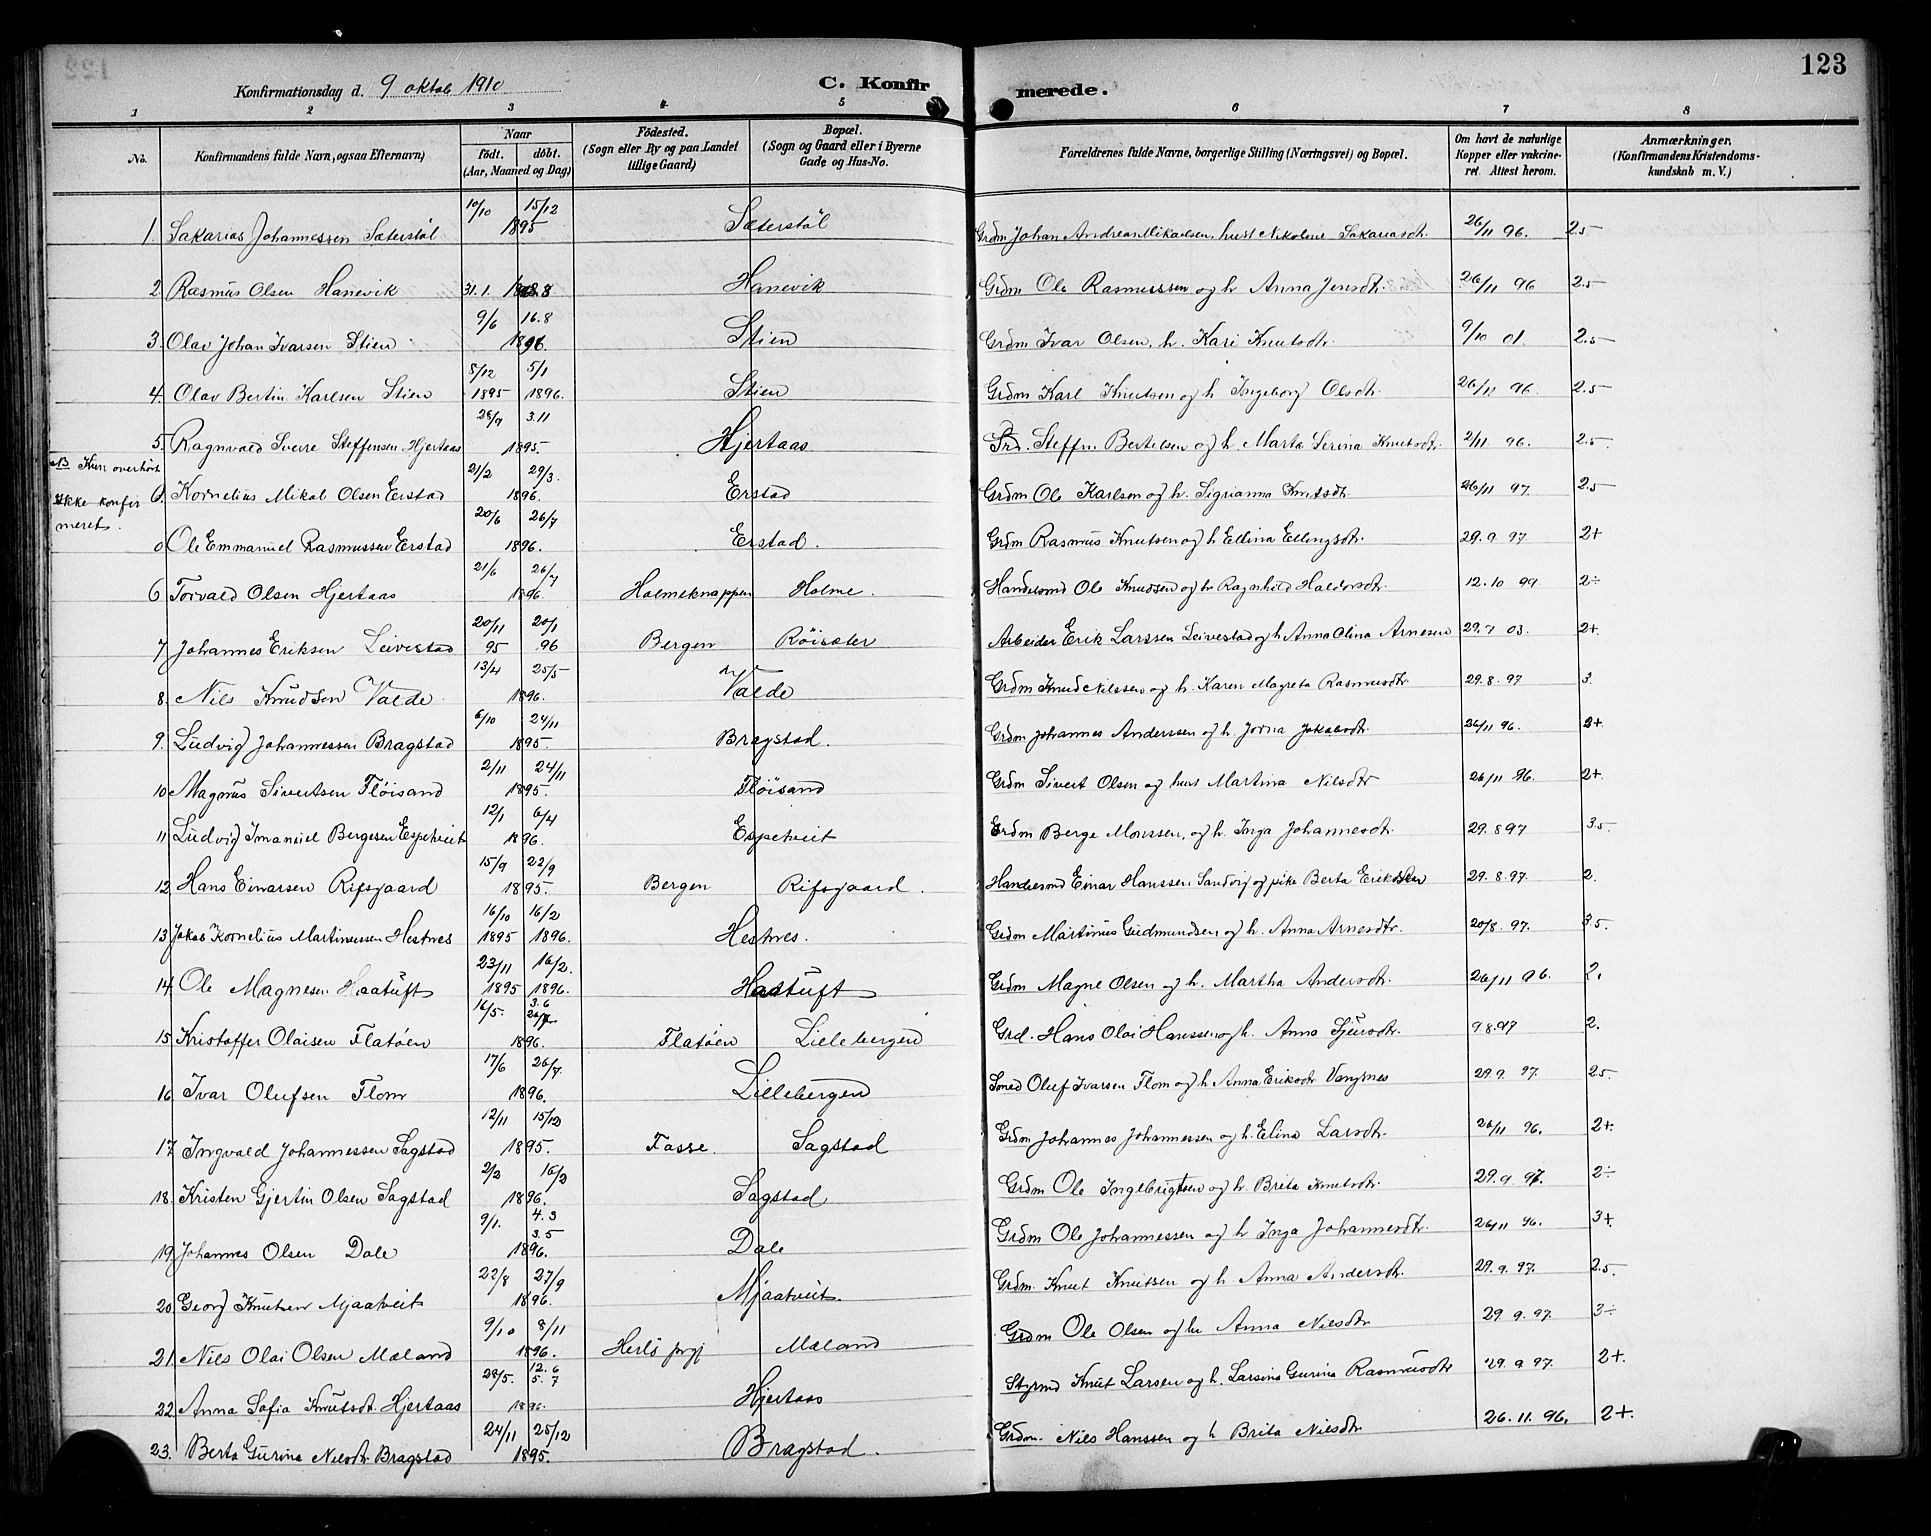 123
Konfirmationsdag d. 9 oktob 1910 C. Konfir merede.
1 2 3 4 5 6 7 8
No. Konfirmandens fulde Navn, ogsaa Efternavn) Naar født. døbt. (Aar, Maaned og Dag) Fødested. (Sogn eller By og paa Landet tillige Gaard) Bopæl. (Sogn og Gaard eller i Byerne Gade og Hus-No. Forældrenes fulde Navne, borgerlige Stilling (Næringsvei) og Bopæl. Om havt de naturlige Kopper eller vakcineret. Attest herom. Anmærkninger. (Konfirmandens Kristendomskundskab m. V.)
1. Sakarias Johannessen Sæterstøl 10/10 15/12 1895 Sæterstøl Grdm Johan Andrean Mikaelsen, hust Nikoline Sakariasdtr. 26/11 96. 2.5
2 Rasmus Olsen Hanevik 31.1. Hanevik Grdm Ole Rasmussen og h Anna Jensdtr. 26/11 96 2.5
3. Olav Johan Ivarsen Stien 9/6 16.8 1896. Stien Grdm Ivar Olsen, h. Kari Knutsdtr. 9/10 01. 2.5
4. Olav Bertin Karlsen Stien 5/12 1895 5/1 1896. Stien Grdm Karl Knutsen og h Ingeborg Olsdtr. 26/11 96. 2.5
5. Ragnvald Sverre Steffensen Hjertaas 28/9 3.11 1895. Hjertaas Steffen Bertelsen og h. Marta Serina Knutsdtr. 2/11 96. 2.5
NB Kun overhørt ikke konfirmeret.
0. Kornelius Mikal Olsen Erstad 21/2 29/3. 1896. Erstad Grdm Ole Karlsen og h. Sigrianna Knutsdtr. 26/11 97. 2.5
0 Ole Emmanuel Rasmussen Erstad 20/6 26/7 1896. Erstad. Grdm Rasmus Knutsen og h Ellina Ellingsdtr. 29.9 97. 2+
6 Torvald Olsen Hjertaas 21/6 26/7 1896. Holmeknappen Holme. Handelsmd Ole Knudsen og h Ragnhild Haldorsdtr. 12.10 99. 2÷
7 Johannes Eriksen Leivestad 20/11 95 20/1 96 Bergen Röisæter Arbeider Erik Larssen Leivestad og h Anna Olina Arnesen 29.7 03. 2+.
8. Nils Knudsen Valde 13/4 25/5 1896. Valde Grdm Knud Nilssen og h. Karen Magreta Rasmusdtr. 29.8. 97 3.
9. Ludvig Johannessen Bragstad 6/10 24/11 1895. Bragstad. Grdm Johannes Anderssen og h. Jorna Jakobsdtr. 26/11 96. 2+
10 Magnus Sivertsen Flöisand 2/11 24/11 1895. Flöisand Grdm Sivert Olsen og hust Martina Nilsdtr 26/11 96. 2+
11. Ludvig Imanuel Bergesen Espetveit 12/1 6/4 1896. Espetveit Grdm Berge Monssen, og h. Inga Johannesdtr. 29.8 97 3.5
12. Hans Einarsen Rifsgaard 15/9 22/9 1895. Bergen Rifsgaard. Handelsmd Einar Hanssen Sandvig og pike Berta Eriksen 29.8.97. 2.
13 Jakob Kornelius Martinussen Hestnes 16/10 1895 16/2 1896. Hestnes. Grdm Martinus Gudmundsen og h. Anna Arnesdtr. 20/8. 97. 3.5.
14. Ole Magnesen Haatuft 23/11 1895 16/2. 1896. Haatuft Grdm Magne Olsen og h. Martha Andersdtr. 26/11 96. 2.
15. Kristoffer Olaisen Flatöen 16/5. 3.6 26/7 1896. Flatöen Lillebergen Grd. Hans Olai Hanssen og h. Anna Sjursdtr. 9.8.97 2.
16. Ivar Olufsen Flom 17/6 26/7. 1896. Lillebergen Smed Oluf Ivarsen Flom og h Anna Eriksdtr Vangsnes 29.9. 97. 2.5.
17. Ingvald Johannessen Sagstad 12/11 15/12 1895. Fasse. Sagstad Grdm Johannes Johannessen og h. Elina Larsdtr. 26/11 96. 2+.
18. Kristen Gjertin Olsen Sagstad 2/2 16/2 1896. Sagstad Grdm Ole Ingebrigtsen og h. Brita Knutsdtr. 29.9.97. 2÷
19. Johannes Olsen Dale 9/1. 4.3 3.5 1896. Dale Grdm Ole Johannessen og h Inga Johannesdtr. 26/11 96. 3+.
20. Georg Knutsen Mjaatveit 22/8 27/9 1896. Mjaatveit. Grdm. Knut Knutsen og h. Anna Andersdtr. 29.9.97. 2.5.
21. Nils Olai Olsen Mæland 9/10 8/11 1896. Herlö prgj Mæland Grdm Ole Olsen og h Anna Nilsdtr 29.9.97. 3÷
22. Anna Sofia Knutsdt. Hjertaas 29/5. 12.6 5.7 1896. Hjertaas Styrmd Knut Larsen og h. Larsina Gurina Rasmusdtr 29.9 97. 2+.
23. Berta Gurina Nilsdtr Bragstad 24/11 25/12 1895. Bragstad. Grdm. Nils Hanssen og h Brita Nilsdtr 26.11.96. 2+.